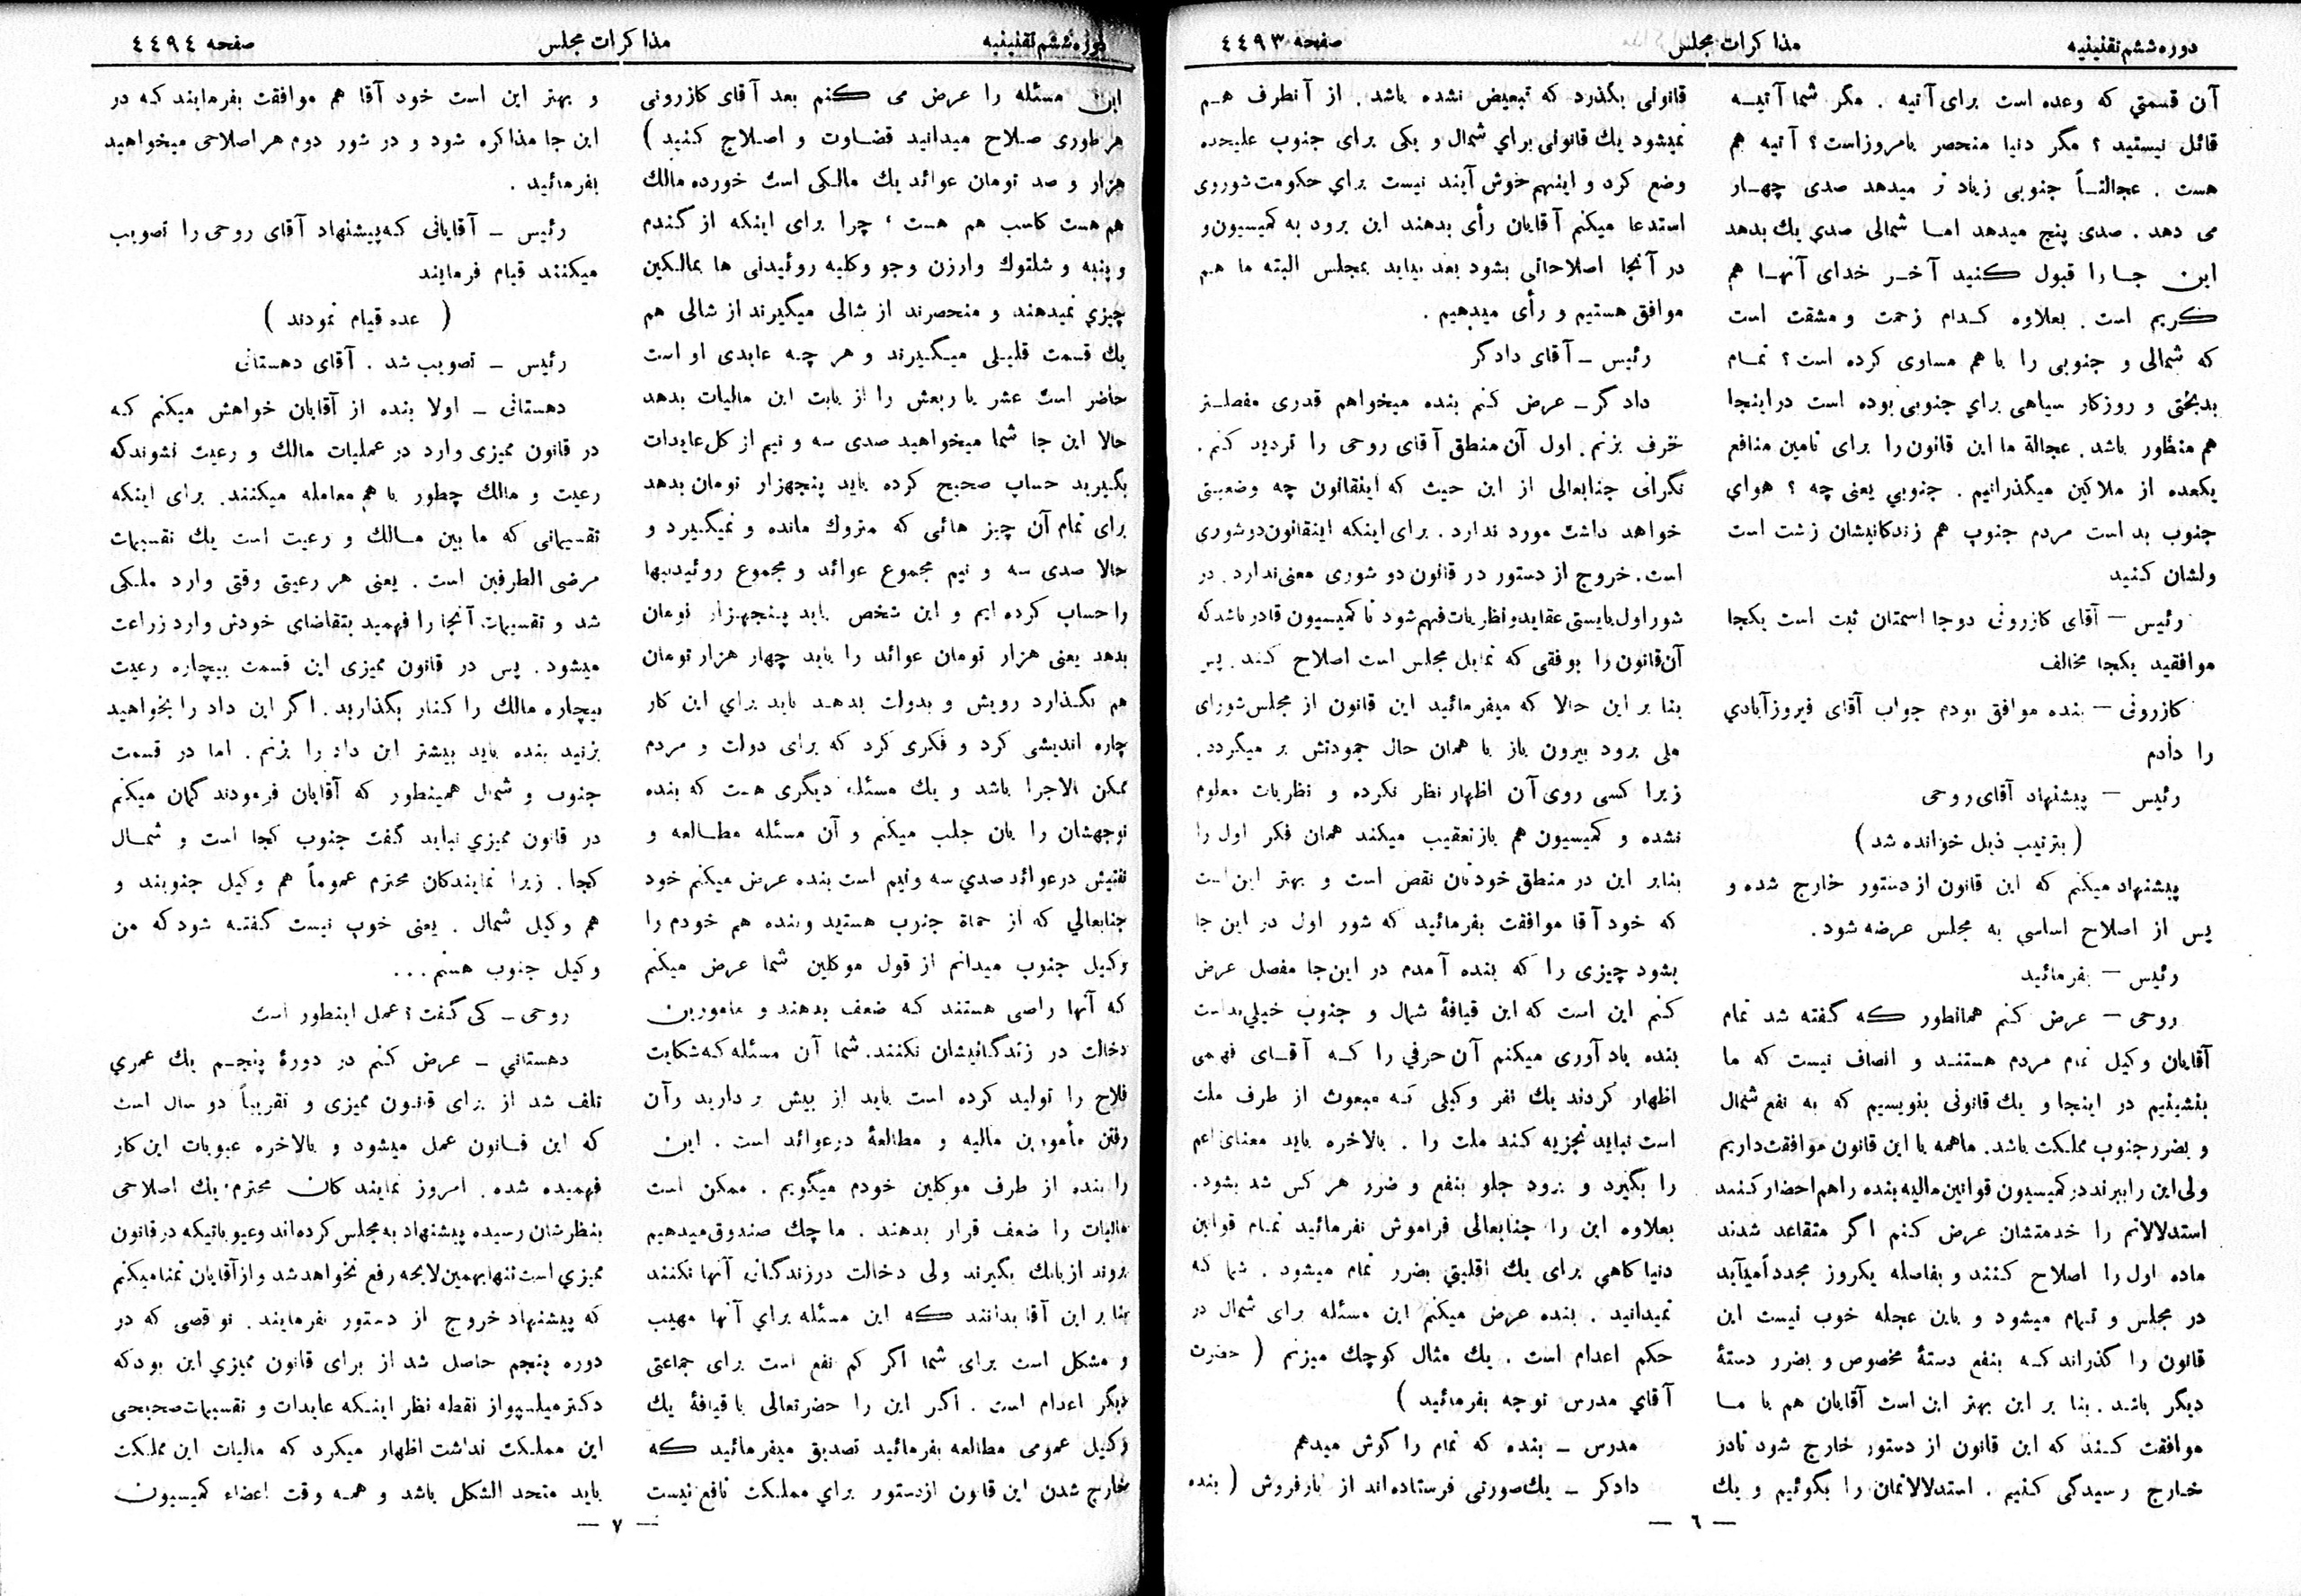 دوره ششم تقنینیه
مذاکرات مجلس
صفحه ٤٤٩٣
آن قسمتی که وعده است برای آتیه . مگر شما آتیه
قائل نیستید ؟ مگر دنیا منحصر بامروز است ؟ آتیه هم
هست . عجالتاً جنوبی زیاد تر میدهد صدی چهار
می دهد . صدی پنج میدهد اما شمالی صدی یك بدهد
این جا را قبول کنید آخر خدای آنها هم
کریم است . بعلاوه کدام زحمت و مشقت است
که شمالی و جنوبی را با هم مساوی کرده است ؟ تمام
بدبختی و روزکار سیاهی برای جنوبی بوده است در اینجا
هم منظور باشد . عجالة ما این قانون را برای تامین منافع
یکعده از ملاکین میگذرانیم . جنوبی یعنی چه ؟ هوای
جنوب بد است مردم جنوب هم زندکانیشان زشت است
ولشان کنید
رئیس — آقای کازرونی دوجا اسمتان ثبت است یکجا
موافقید یکجا مخالف
کازرونی — بنده موافق بودم جواب آقای فیروزآبادی
را دادم
رئیس — پیشنهاد آقای روحی
( بترتیب ذیل خوانده شد )
پیشنهاد میکنم که این قانون از دستور خارج شده و
پس از اصلاح اساسی به مجلس عرضه شود .
رئیس — بفرمائید
روحی — عرض کنم همانطور که گفته شد تمام
آقایان وکیل تمام مردم هستند و انصاف نیست که ما
بنشینیم در اینجا و یك قانونی بنویسیم که به نفع شمال
و بضرر جنوب مملکت باشد . ماهمه با این قانون موافقت داریم
ولی این را ببرند در کمیسیون قوانین مالیه بنده را هم احضار کنند
استدلالاتم را خدمتشان عرض کنم اگر متقاعد شدند
ماده اول را اصلاح کنند و بفاصله یکروز مجدداً میآید
در مجلس و تمام میشود و باین عجله خوب نیست این
قانون را گذراند که بنفع دستهٔ مخصوص و بضرر دستهٔ
دیگر باشد . بنا بر این بهتر این است آقایان هم با ما
موافقت کنند که این قانون از دستور خارج شود تا در
خارج رسیدگی کنیم . استدلالاتمان را بگوئیم و یك
قانونی بگذرد که تبعیض نشده باشد . از آنطرف هم
نمیشود یك قانونی برای شمال و یکی برای جنوب علیحده
وضع کرد و اینهم خوش آیند نیست برای حکومت شوروی
استدعا میکنم آقایان رأی بدهند این برود به کمیسیون و
در آنجا اصلاحاتی بشود بعد بیاید بمجلس البته ما هم
موافق هستیم و رأی میدهیم .
رئیس — آقای دادگر
دادگر — عرض کنم بنده میخواهم قدری مفصلتر
حرف بزنم . اول آن منطق آقای روحی را تردید کنم .
نگرانی جنابعالی از این حیث که اینقانون چه وضعیتی
خواهد داشت مورد ندارد . برای اینکه اینقانون دو شوری
است . خروج از دستور در قانون دو شوری معنی ندارد . در
شور اول بایستی عقاید و نظریات فهم شود تا کمیسیون قادر باشد که
آن قانون را بوفقی که تمایل مجلس است اصلاح کند . پس
بنا بر این حالا که میفرمائید این قانون از مجلس شورای
ملی برود بیرون باز با همان حال جمودتش بر میگردد .
زیرا کسی روی آن اظهار نظر نکرده و نظریات معلوم
نشده و کمیسیون هم باز تعقیب میکند همان فکر اول را
بنابر این در منطق خودتان نقص است و بهتر این است
که خود آقا موافقت بفرمائید که شور اول در این جا
بشود چیزی را که بنده آمدم در این جا مفصل عرض
کنم این است که این قیافهٔ شمال و جنوب خیلی بد است
بنده یادآوری میکنم آن حرفی را که آقای فهیمی
اظهار کردند یك نفر وکیلی که مبعوث از طرف ملت
است نباید تجزیه کند ملت را . بالاخره باید معنای اعم
را بگیرد و برود جلو بنفع و ضرر هر کس شد بشود .
بعلاوه این را جنابعالی فراموش نفرمائید تمام قوانین
دنیا کاهی برای یك اقلیتی بضرر تمام میشود . شما که
نمیدانید . بنده عرض میکنم این مسئله برای شمال در
حکم اعدام است . یك مثال کوچك میزنم ( حضرت
آقای مدرس توجه بفرمائید )
مدرس — بنده که تمام را گوش میدهم
دادگر — یك صورتی فرستاده اند از بارفروش ( بنده
— ٦ —
دوره ششم تقنینیه
مذاکرات مجلس
صفحه ٤٤٩٤
این مسئله را عرض می کنم بعد آقای کازرونی
هر طوری صلاح میدانید قضاوت و اصلاح کنید )
هزار و صد تومان عوائد یك مالکی است خورده مالك
هم هست کاسب هم هست ، چرا برای اینکه از گندم
و پنبه و شلتوك و ارزن و جو و کلیه روئیدنی ها بمالکین
چیزی نمیدهند و منحصرند از شالی میگیرند از شالی هم
یك قسمت قلیلی میگیرند و هر چه عایدی او است
حاضر است عشر یا ربعش را از بابت این مالیات بدهد
حالا این جا شما میخواهید صدی سه و نیم از کل عایدات
بگیرید حساب صحیح کرده باید پنجهزار تومان بدهد
برای تمام آن چیز هائی که متروك مانده و نمیگیرد و
حالا صدی سه و نیم مجموع عوائد و مجموع روئیدنیها
را حساب کرده ایم و این شخص باید پنجهزار تومان
بدهد یعنی هزار تومان عوائد را باید چهار هزار تومان
هم بگذارد رویش و بدولت بدهد باید برای این کار
چاره اندیشی کرد و فکری کرد که برای دولت و مردم
ممکن الاجرا باشد و یك مسئله دیگری هست که بنده
توجهشان را بآن جلب میکنم و آن مسئله مطالعه و
تفتیش در عوائد صدی سه و نیم است بنده عرض میکنم خود
جنابعالی که از حماة جنوب هستید و بنده هم خودم را
وکیل جنوب میدانم از قول موکلین شما عرض میکنم
که آنها راضی هستند که ضعف بدهند و مامورین
دخالت در زندگانیشان نکنند . شما آن مسئله که شکایت
فلاح را تولید کرده است باید از بیش بردارید و آن
رفتن مأمورین مالیه و مطالعهٔ در عوائد است . این
را بنده از طرف موکلین خودم میگویم . ممکن است
مالیات را ضعف قرار بدهند . ما چك صندوق میدهیم
بروند از بانك بگیرند ولی دخالت در زندگانی آنها نکنند
بنا بر این آقا بدانند که این مسئله برای آنها مهیب
و مشکل است برای شما اگر کم نفع است برای جماعتی
دیگر اعدام است . اگر این را حضرتعالی با قیافهٔ یك
وکیل عمومی مطالعه بفرمائید تصدیق میفرمائید که
خارج شدن این قانون از دستور برای مملکت نافع نیست
و بهتر این است خود آقا هم موافقت بفرمایند که در
این جا مذاکره شود و در شور دوم هر اصلاحی میخواهید
بفرمائید .
رئیس — آقایانی که پیشنهاد آقای روحی را تصویب
میکنند قیام فرمایند
( عده قیام نمودند )
رئیس — تصویب شد . آقای دهستانی
دهستانی — اولا بنده از آقایان خواهش میکنم که
در قانون ممیزی وارد در عملیات مالك و رعیت نشوند که
رعیت و مالك چطور با هم معامله میکنند . برای اینکه
تقسیماتی که ما بین مالك و رعیت است یك تقسیمات
مرضی الطرفین است . یعنی هر رعیتی وقتی وارد ملکی
شد و تقسیمات آنجا را فهمید بتقاضای خودش وارد زراعت
میشود . پس در قانون ممیزی این قسمت بیچاره رعیت
بیچاره مالك را کنار بگذارید . اگر این داد را بخواهید
بزنید بنده باید بیشتر این داد را بزنم . اما در قسمت
جنوب و شمال همینطور که آقایان فرمودند گمان میکنم
در قانون ممیزی نباید گفت جنوب کجا است و شمال
کجا . زیرا نمایندکان محترم عموماً هم وکیل جنوبند و
هم وکیل شمال . یعنی خوب نیست گفته شود که من
وکیل جنوب هستم ...
روحی — کی گفت ؟ عمل اینطور است
دهستانی — عرض کنم در دورهٔ پنجم یك عمری
تلف شد از برای قانون ممیزی و تقریباً دو سال است
که این قانون عمل میشود و بالاخره عیوبات این کار
فهمیده شده . امروز نمایندکان محترم یك اصلاحی
بنظرشان رسیده پیشنهاد به مجلس کرده اند و عیوباتیکه در قانون
ممیزی است تنها بهمین لایحه رفع نخواهد شد و از آقایان تمنا میکنم
که پیشنهاد خروج از دستور نفرمایند . نواقصی که در
دوره پنجم حاصل شد از برای قانون ممیزی این بود که
دکتر میلسپو از نقطه نظر اینکه عایدات و تقسیمات صحیحی
این مملکت نداشت اظهار میکرد که مالیات این مملکت
باید متحد الشکل باشد و همه وقت اعضاء کمیسیون
— ٧ —